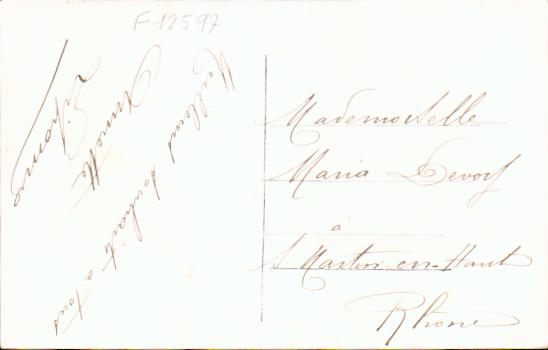 F12597
Meilleurs souhaits a tous
Annette
Mademoiselle
Maria Devoy
à
St Martin-en-Haut
Rhône